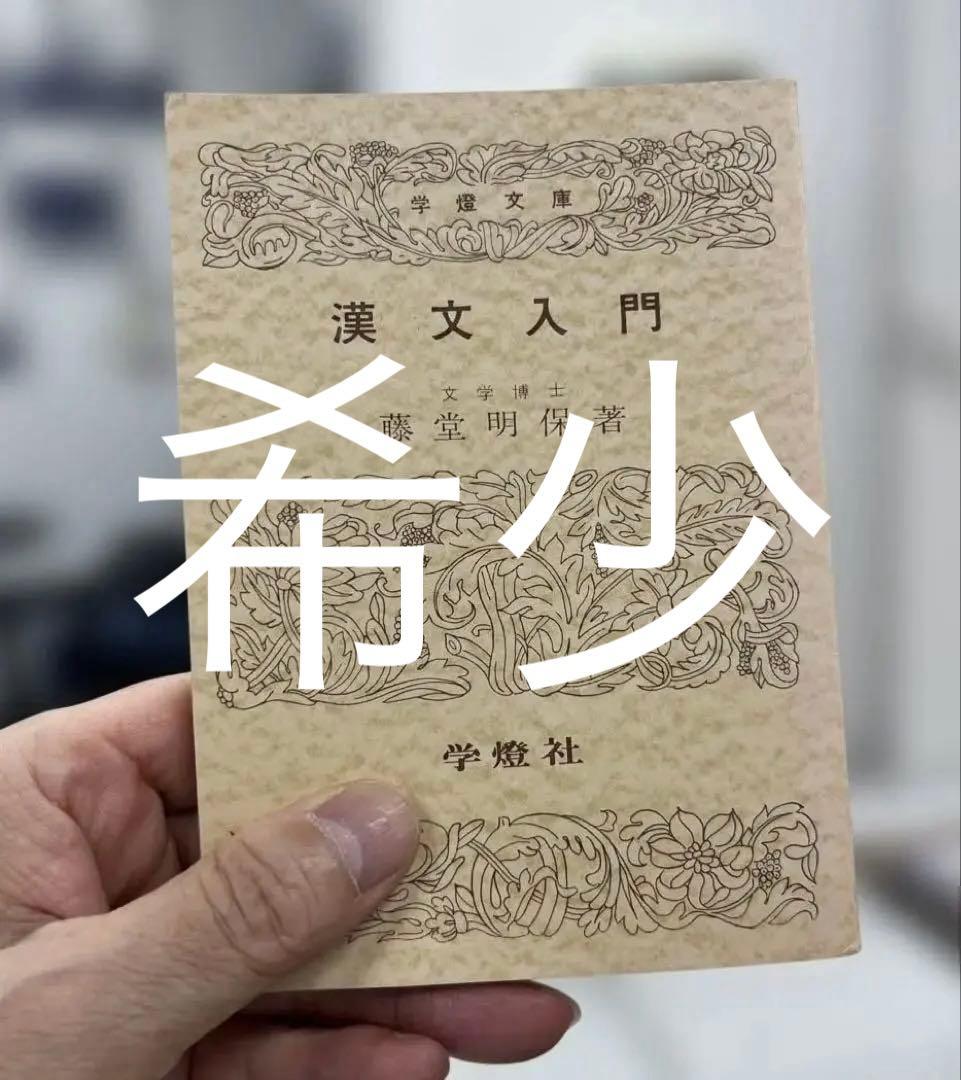 学燈文庫
漢文入門
文学博士
藤堂明保著
希少
学燈社